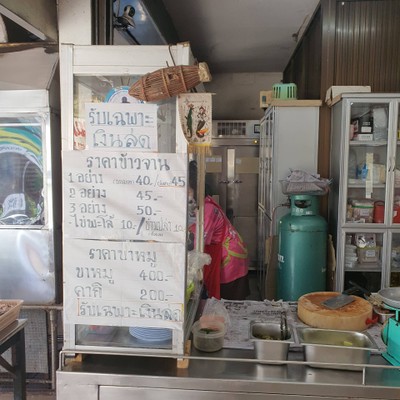 รับเฉพาะ
เงินสด
ราคาข้าวจาน
1 อย่าง 40 45
2 อย่าง 45.-
3 อย่าง 50.-
ไข่พะโล้ 10.-
ราคาขาหมู
ขาหมู 400.-
คากิ 200.-
รับเฉพาะเงินสด